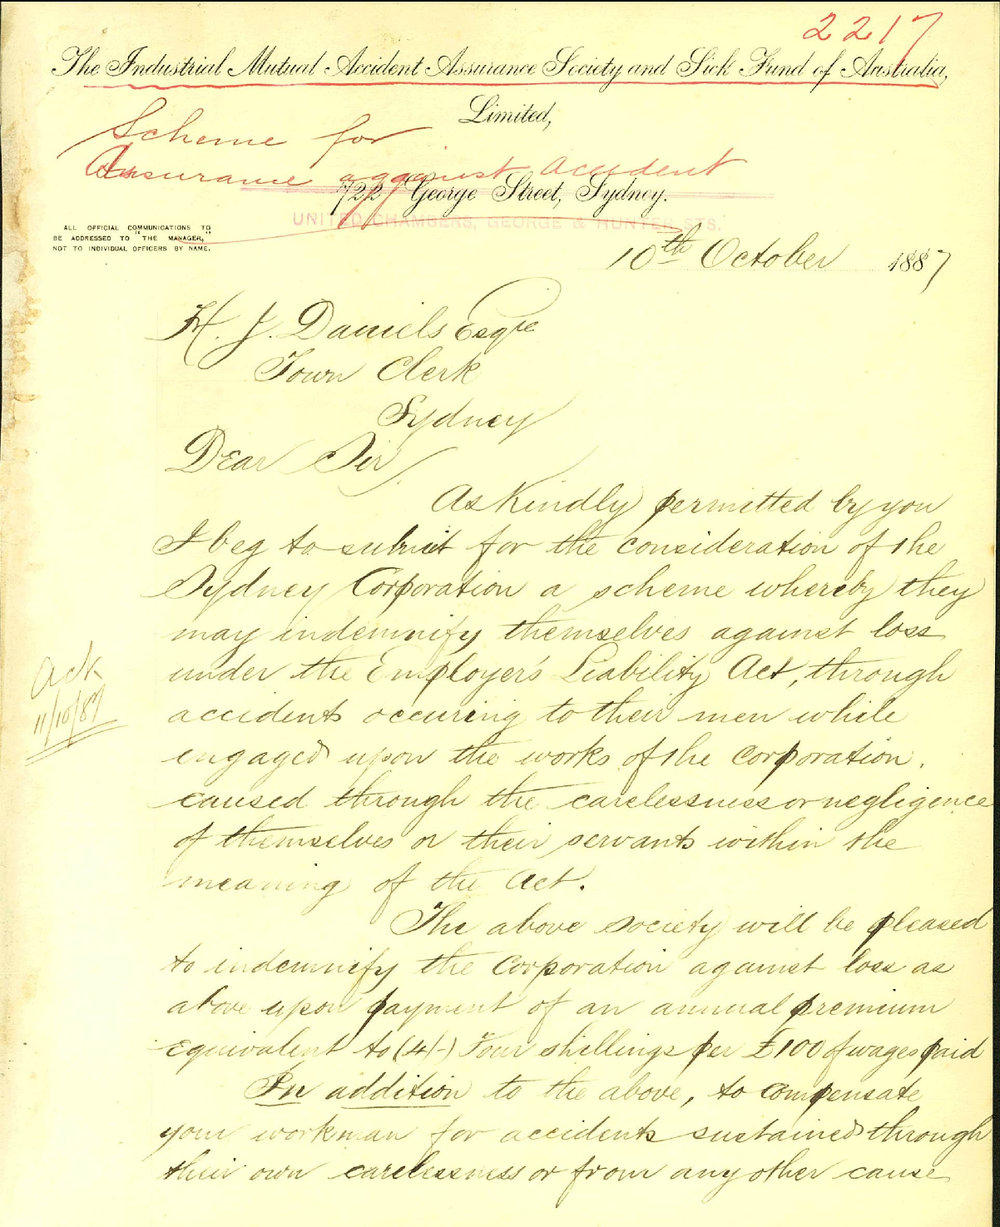 2217
The Industrial Mutual Accident Assurance Society and Sick Fund of Australia,
Limited,
Scheme for
Assurance against accident
722 George Street, Sydney.
UNITED CHAMBERS, GEORGE & HUNTER STS.
ALL OFFICIAL COMMUNICATIONS TO
BE ADDRESSED TO "THE MANAGER,"
NOT TO INDIVIDUAL OFFICERS BY NAME.
10th October 1887
H. J. Daniels Esqre
Town Clerk
Sydney
Dear Sir,
As Kindly permitted by you
I beg to submit for the consideration of the
Sydney Corporation a scheme whereby they
may indemnify themselves against loss
under the Employer's Liability Act, through
accidents occuring to their men while
engaged upon the works of the Corporation,
caused through the carelessness or negligence
of themselves or their servants within the
meaning of the Act.
Ack
11/10/87
The above Society will be pleased
to indemnify the Corporation against loss as
above upon payment of an annual premium
equivalent to (4/-) Four shillings per £100 of wages paid
In addition to the above, to compensate
your workman for accidents sustained through
their own carelessness or from any other cause